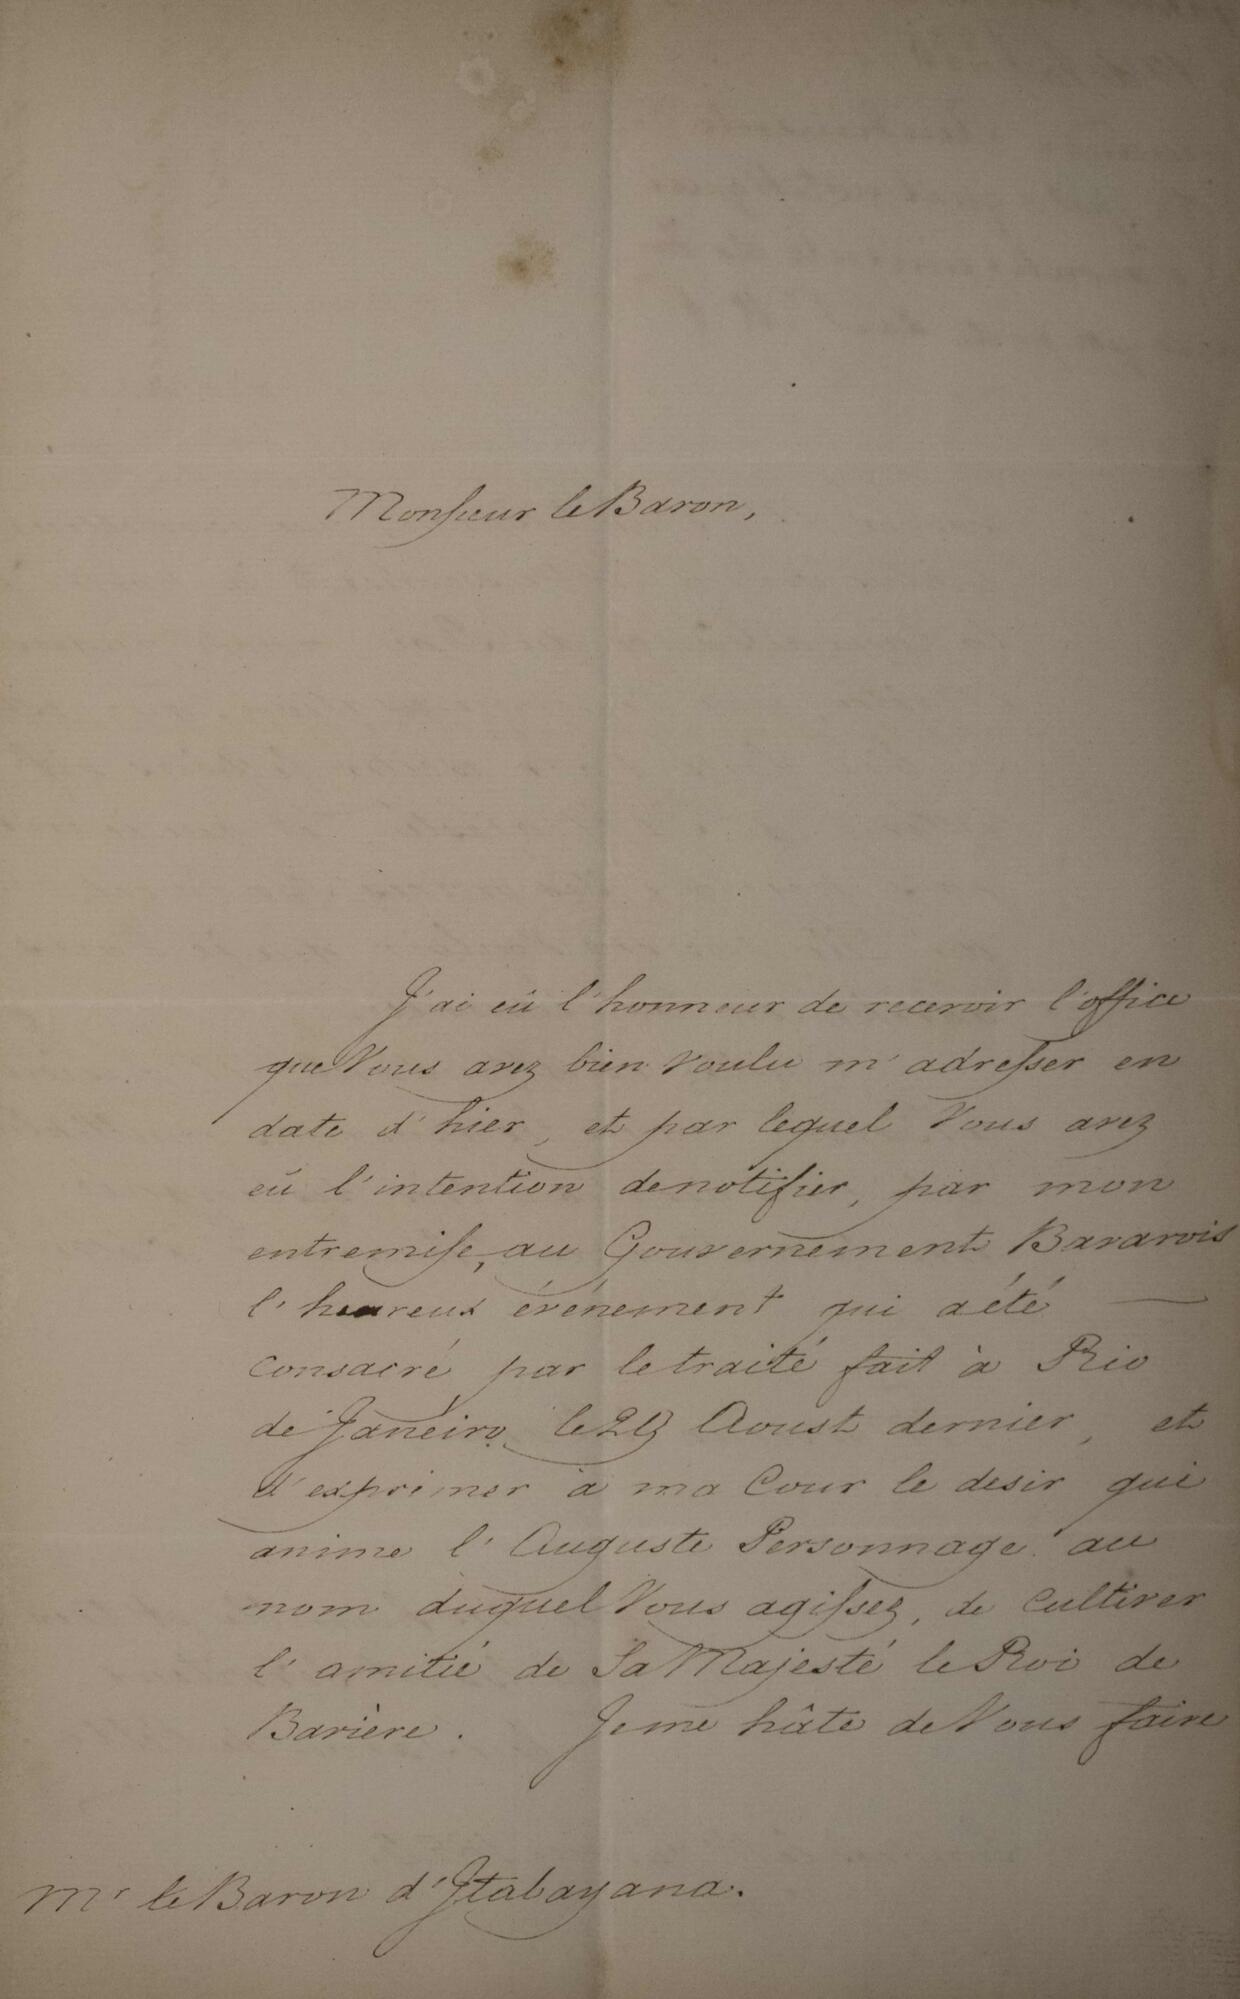 Monsieur le Baron,
J'ai eû l'honneur de recevoir l'office
que Vous avez bien voulu m'adresser en
date d'hier, et par lequel Vous avez
eû l'intention de notifier, par mon
entremise, au Gouvernement Bavarois
l'heureux événement qui a été —
consacré par le traité fait à Rio
de Janeiro le 29 Aoust dernier, et
d'exprimer à ma Cour le desir qui
anime l'Auguste Personnage au
nom duquel Vous agissez, de cultiver
l'amitié de Sa Majesté le Roi de
Bavière. Je me hâte de Vous faire
Mr le Baron d'Itabayana.